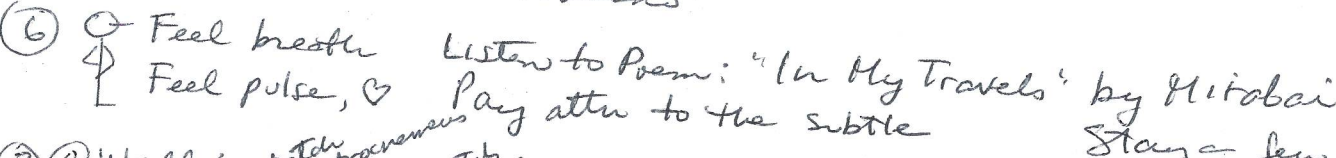 ⑥ Feel breath Listen to Poem: "In My Travels" by Mirabai
Feel pulse, ♡ Pay attn to the subtle
Stay a